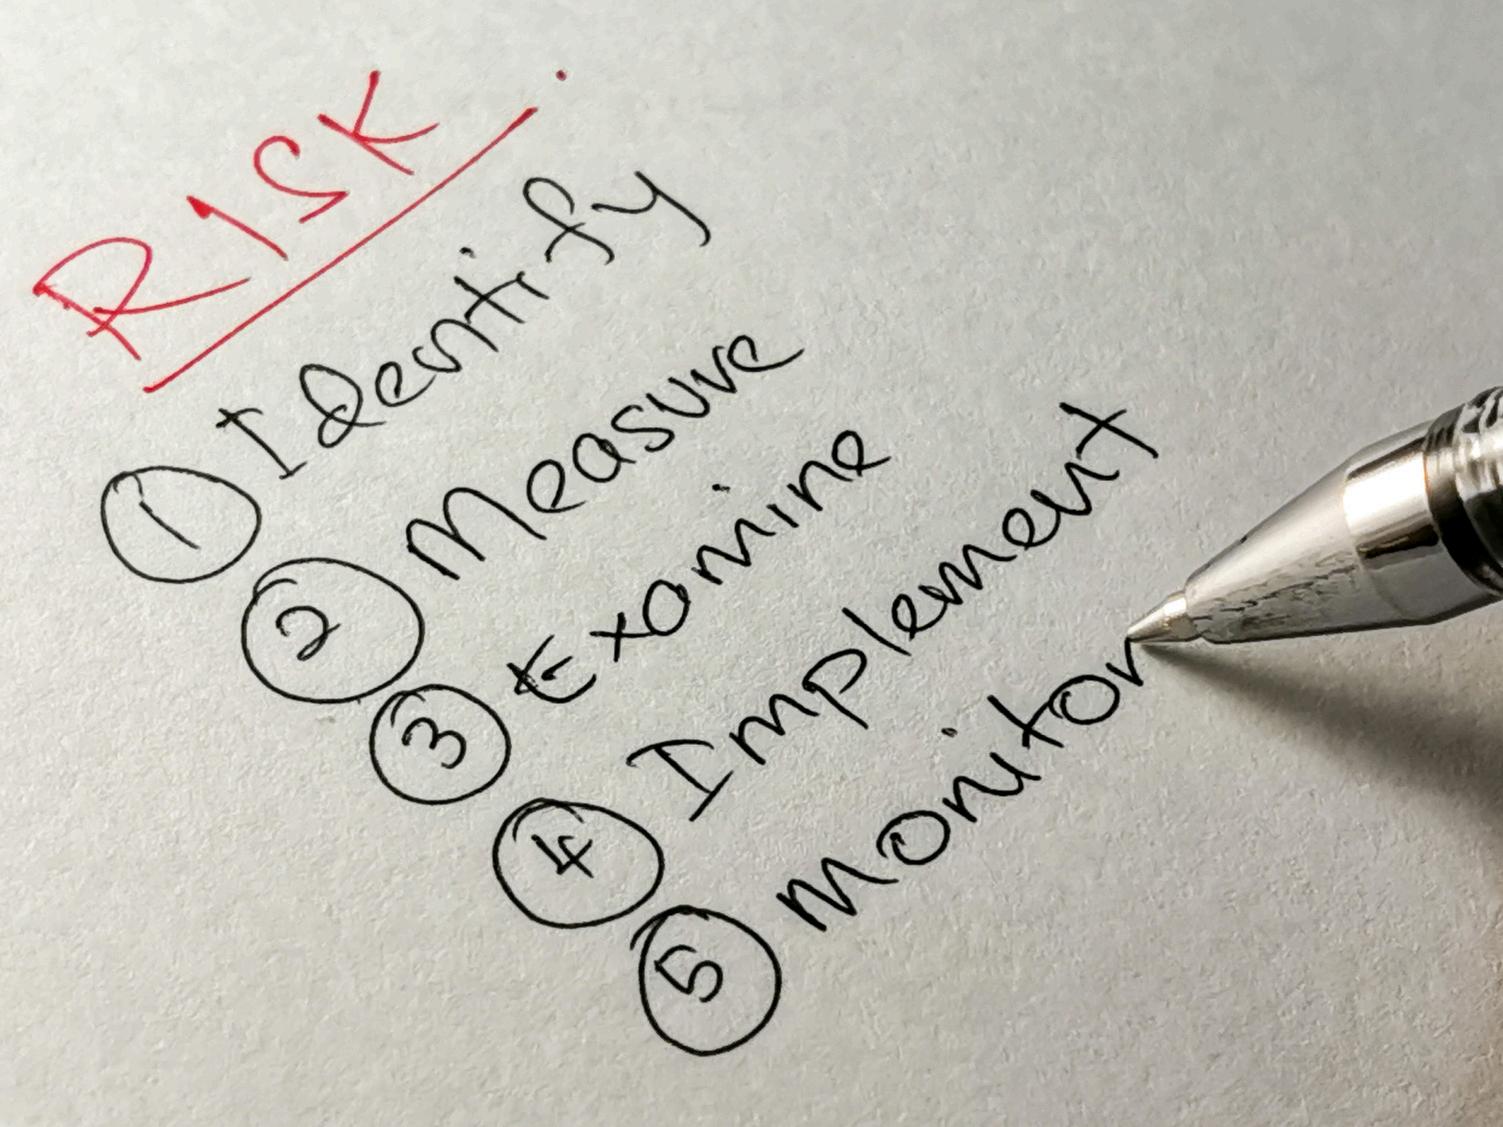 RISK.
1 Identify
2 Measure
3 Examine
4 Implement
5 Monitor